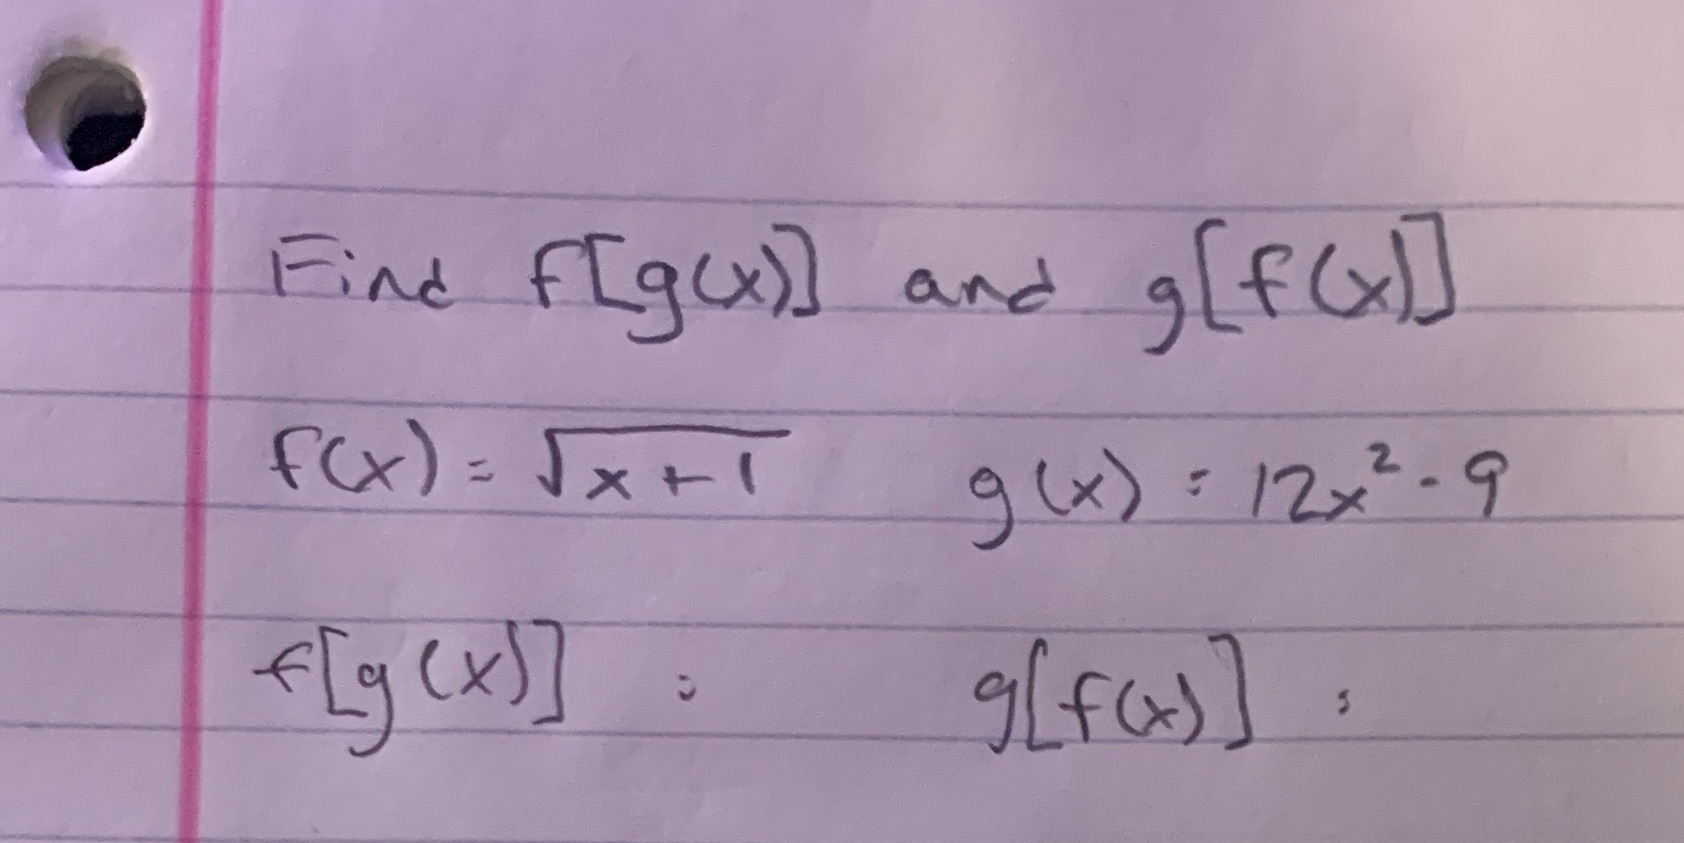 Find f[g(x)] and g[f(x)]
f(x) = √x+1 g(x) = 12x² - 9
f[g(x)] = g[f(x)] =